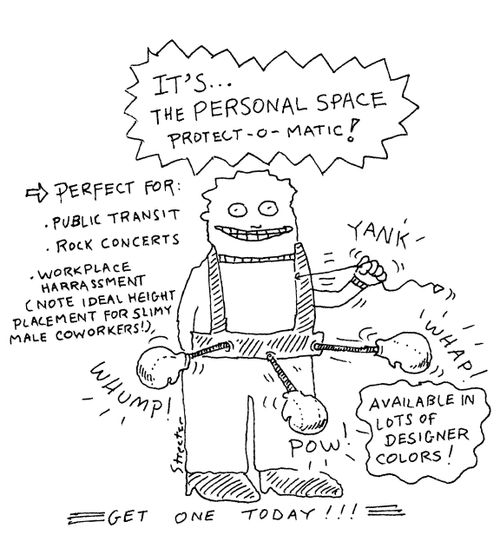 IT'S...
THE PERSONAL SPACE
PROTECT-O-MATIC!
⇨ PERFECT FOR:
· PUBLIC TRANSIT
· ROCK CONCERTS
· WORKPLACE
HARRASSMENT
(NOTE IDEAL HEIGHT
PLACEMENT FOR SLIMY
MALE COWORKERS!)
YANK
WHAP!
WHUMP!
POW!
AVAILABLE IN
LOTS OF
DESIGNER
COLORS!
Streeter
GET ONE TODAY!!!